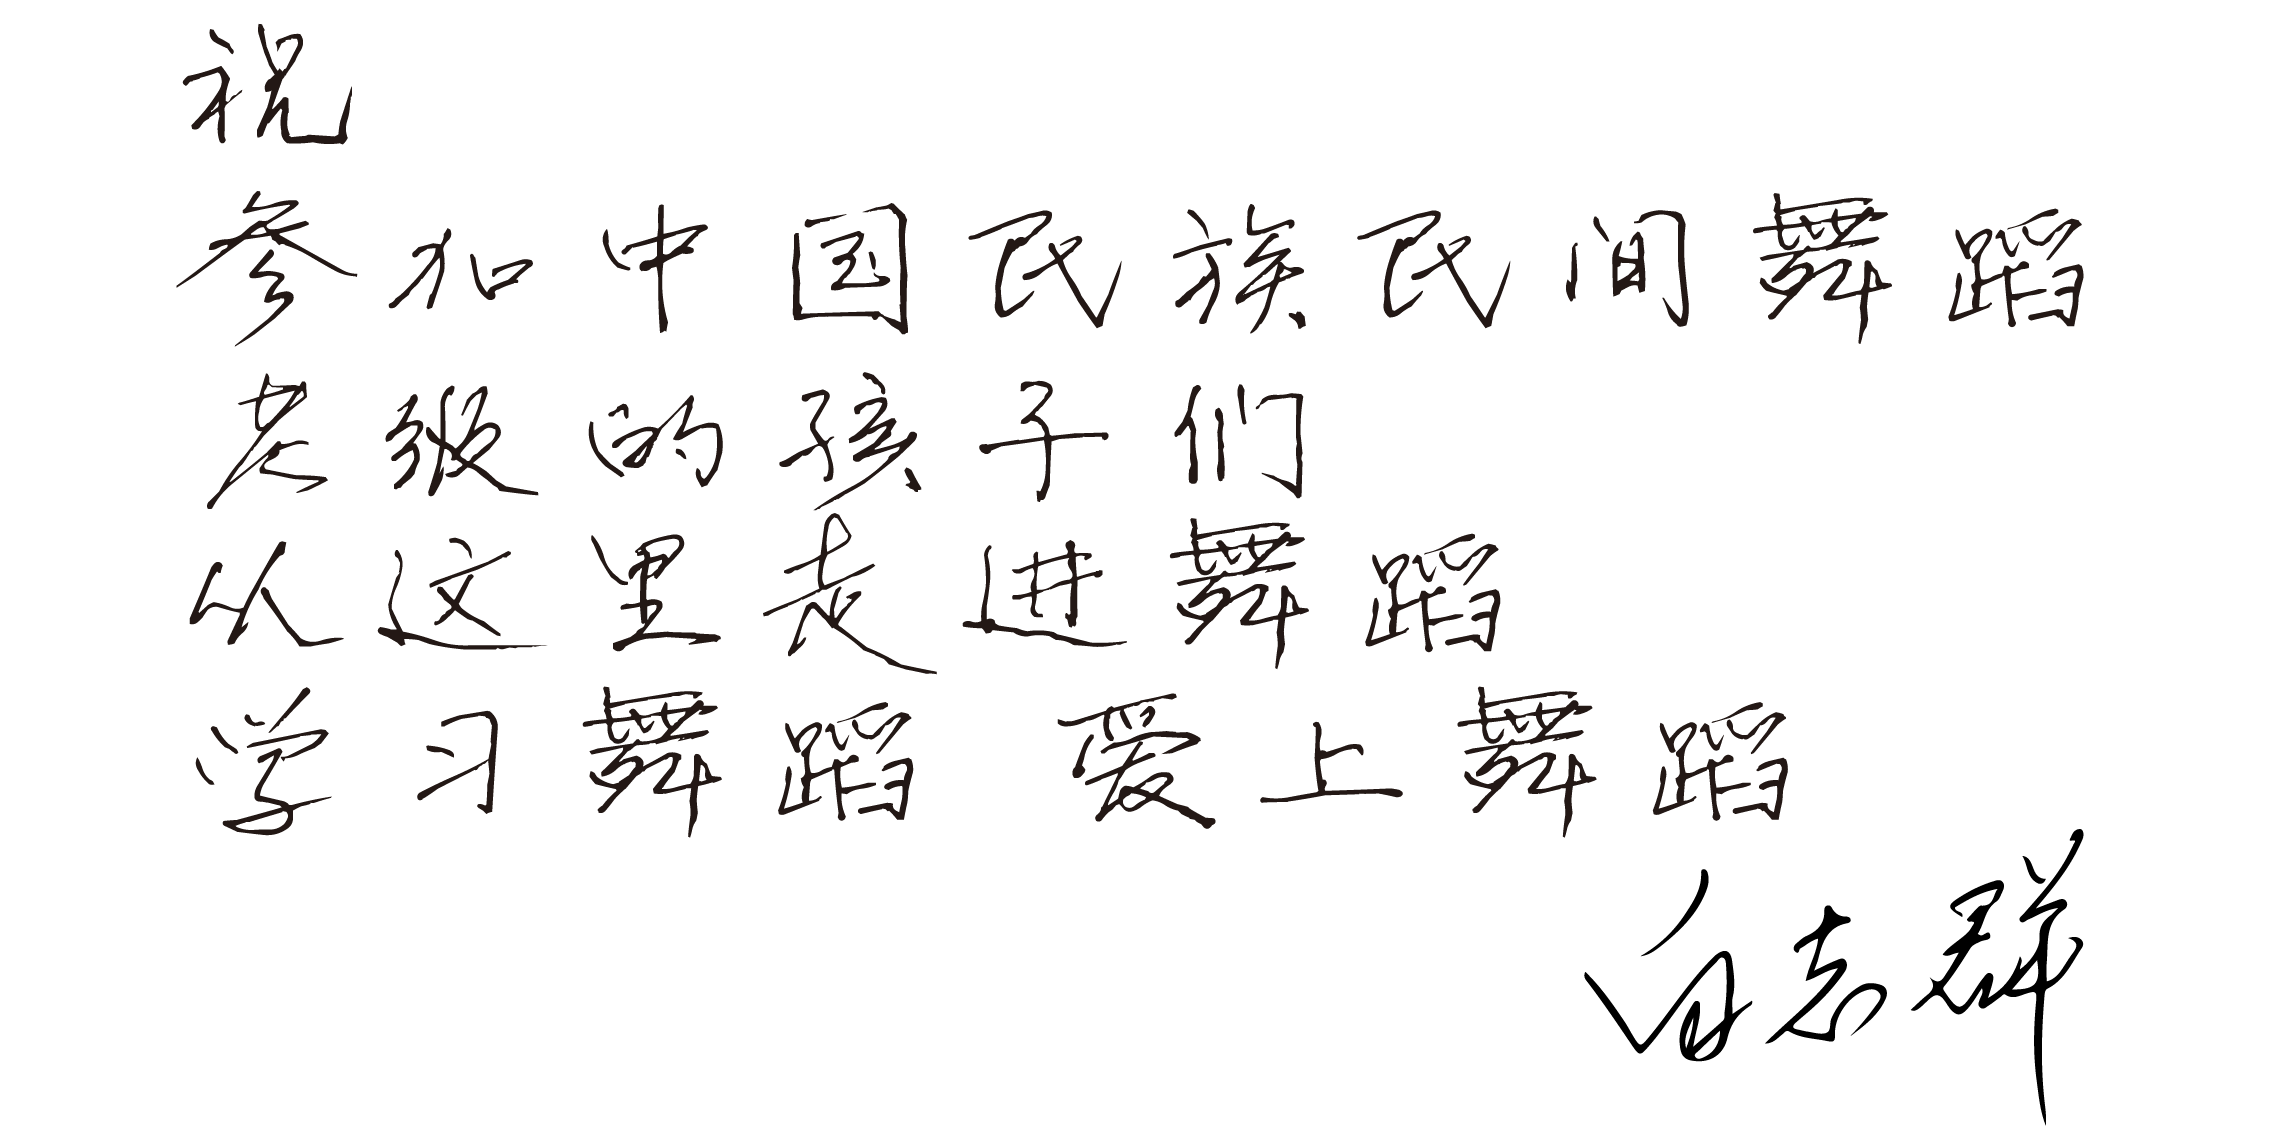 祝
参加中国民族民间舞蹈
考级的孩子们
从这里走进舞蹈
学习舞蹈 爱上舞蹈
白志群